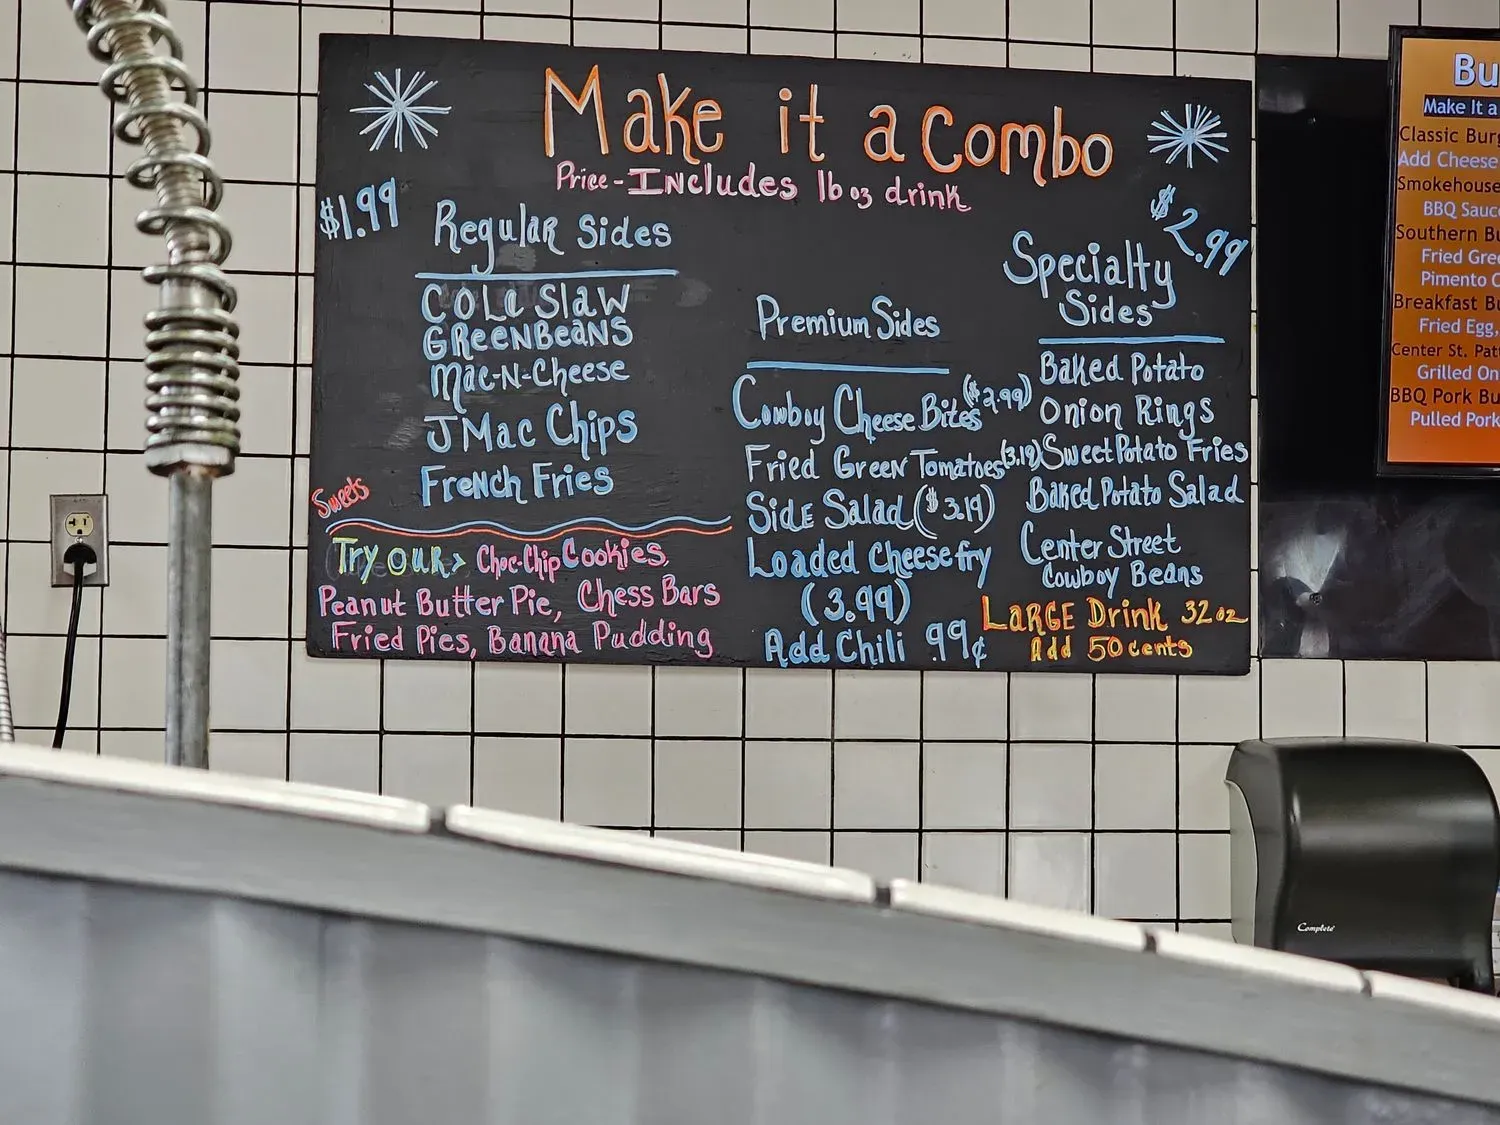 Make it a Combo
Price - Includes 16 oz drink
$1.99
Regular Sides
Cole Slaw
GreenBeans
Mac-N-Cheese
JMac Chips
French Fries
Sweets
Try our > Choc-Chip Cookies,
Peanut Butter Pie, Chess Bars
Fried Pies, Banana Pudding
Premium Sides
Cowboy Cheese Bites ($2.99)
Fried Green Tomatoes (3.19)
Side Salad ($3.19)
Loaded Cheese fry
(3.99)
Add Chili .99¢
$2.99
Specialty
Sides
Baked Potato
Onion Rings
Sweet Potato Fries
Baked Potato Salad
Center Street
Cowboy Beans
LARGE Drink 32 oz
Add 50 cents
Bu
Make It a
Classic Burg
Add Cheese
Smokehouse
BBQ Sauc
Southern Bu
Fried Gree
Pimento C
Breakfast Bu
Fried Egg,
Center St. Patt
Grilled On
BBQ Pork Bu
Pulled Pork
Complete